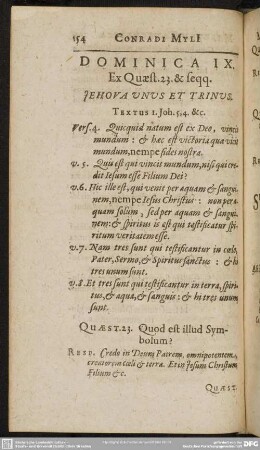 154 CONRADI MYLI
DOMINICA IX.
Ex Quæst. 23. & seqq.
JEHOVA UNUS ET TRINUS.
TEXTUS 1. Joh. 5, 4. &c.
Vers. 4. Quicquid natum est ex Deo, vincit
mundum: & hæc est victoria quæ vincit
mundum, nempe fides nostra.
v. 5. Quis est qui vincit mundum, nisi qui cre-
dit Iesum esse Filium Dei?
v. 6. Hic ille est, qui venit per aquam & sangui-
nem, nempe Iesus Christus: non per a-
quam solum, sed per aquam & sangui-
nem: & spiritus is est qui testificatur spi-
ritum veritatem esse.
v. 7. Nam tres sunt qui testificantur in cœlo,
Pater, Sermo, & Spiritus sanctus: & hi
tres unum sunt.
v. 8. Et tres sunt qui testificantur in terra, spiri-
tus, & aqua, & sanguis: & hi tres unum
sunt.
QUÆST. 23. Quod est illud Sym-
bolum?
RESP. Credo in Deum Patrem, omnipotentem,
creatorem cœli & terræ. Et in Jesum Christum
Filium &c.
QUÆST.